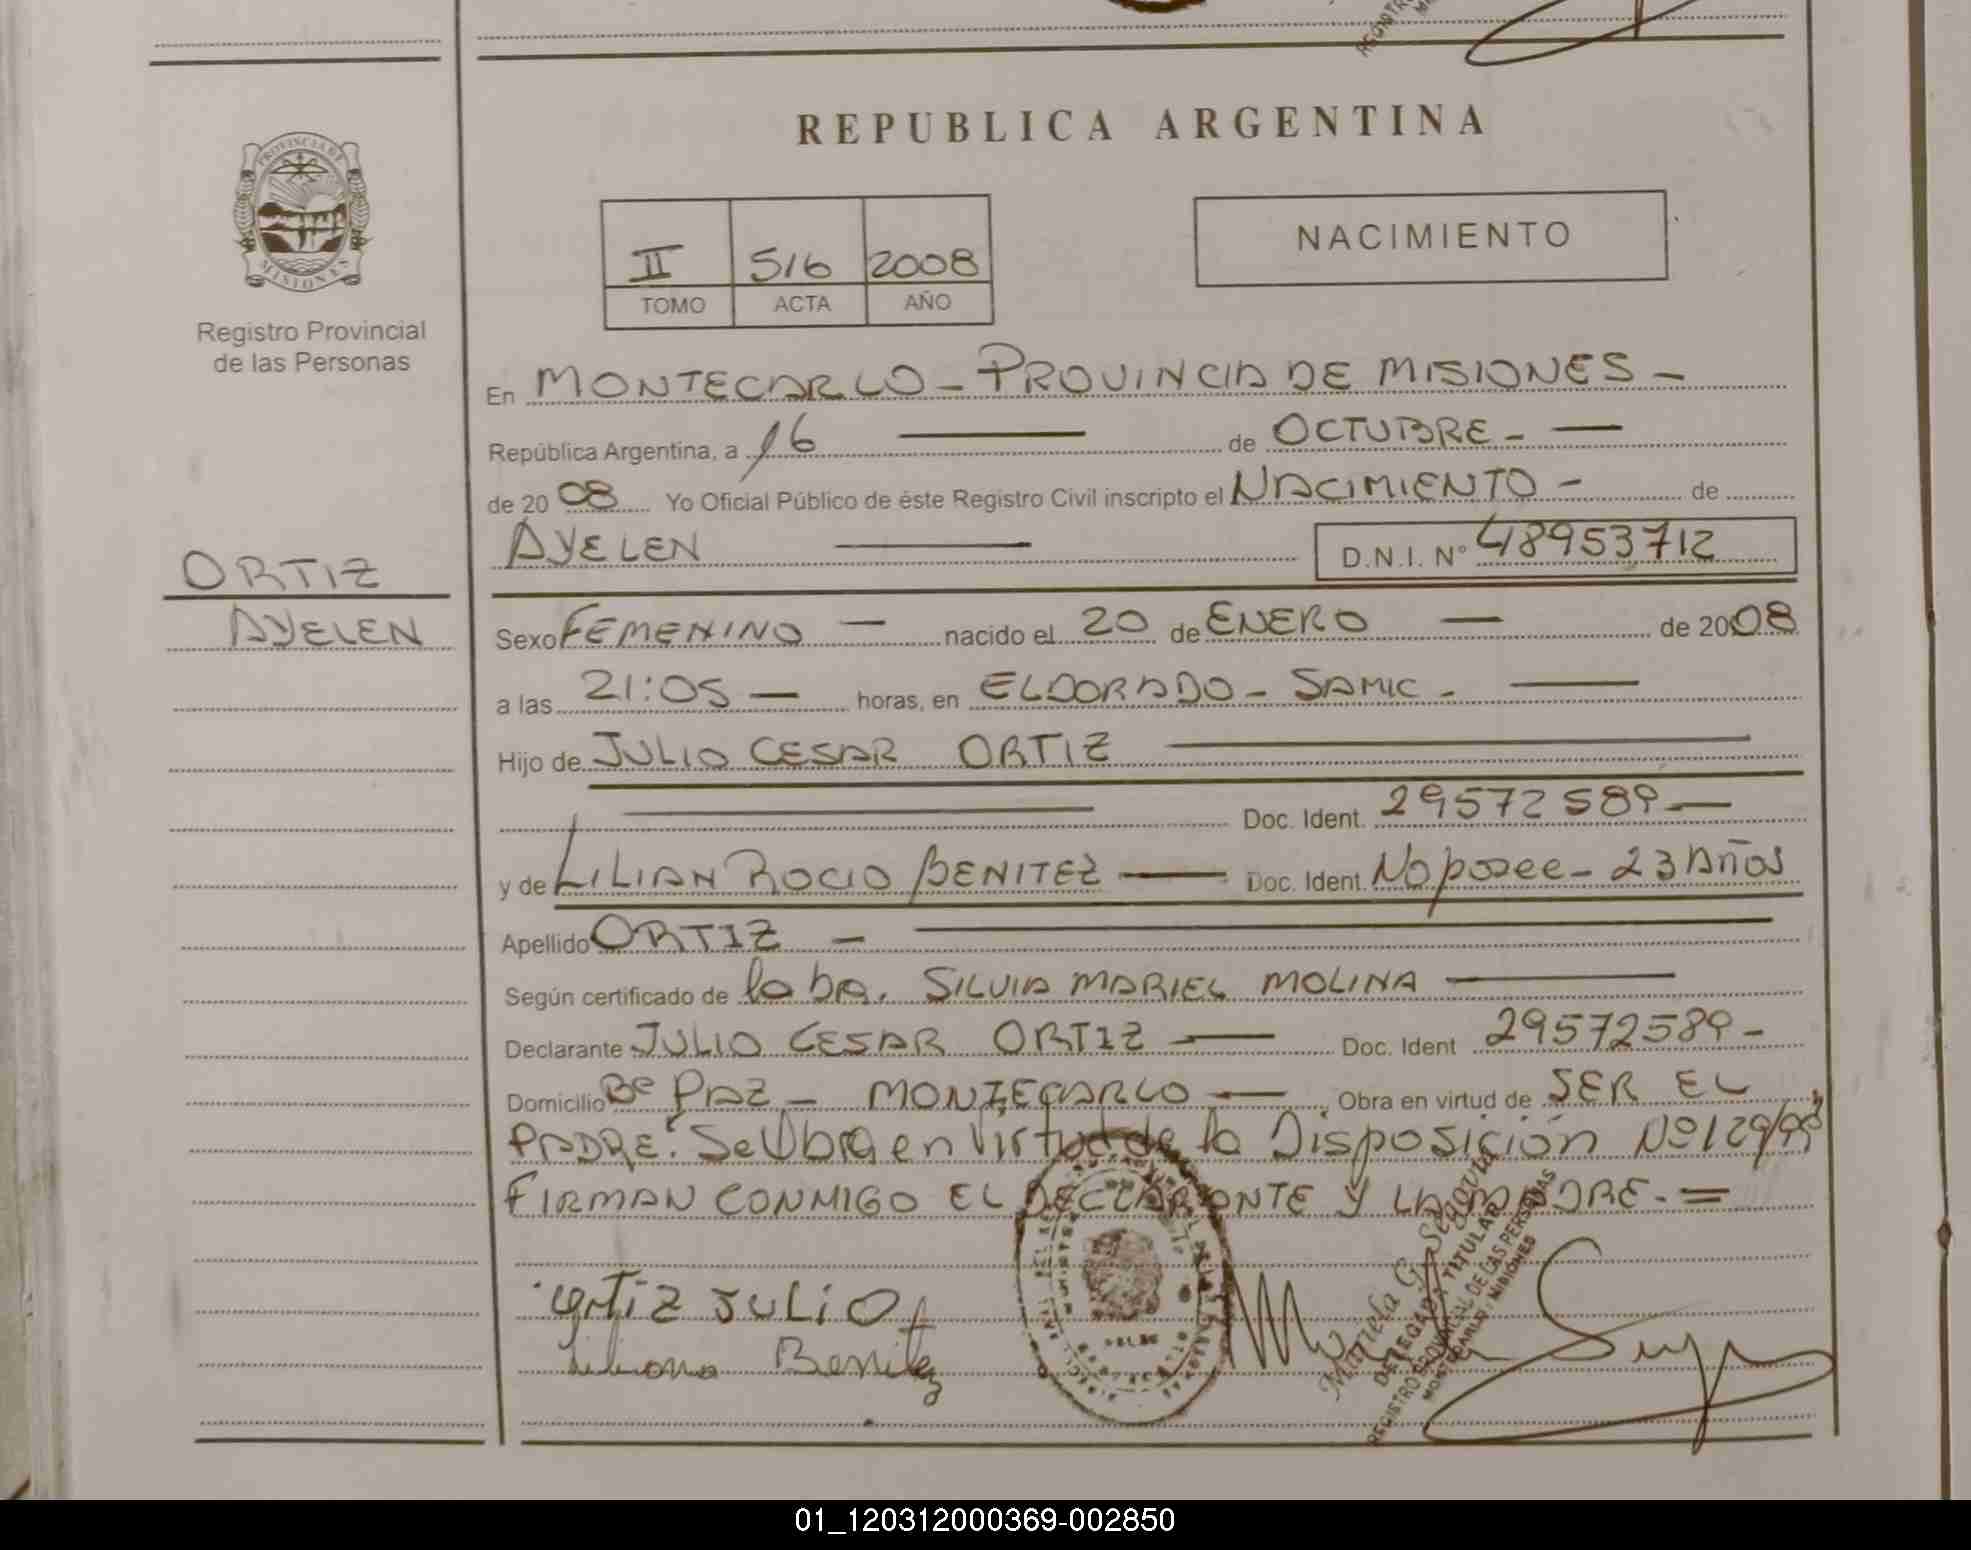 REPUBLICA ARGENTINA
PROVINCIA DE
MISIONES
Registro Provincial
de las Personas
II 516 2008
TOMO ACTA AÑO
NACIMIENTO
En MONTECARLO - PROVINCIA DE MISIONES -
República Argentina, a 16 — de OCTUBRE - —
de 2008 Yo Oficial Público de éste Registro Civil inscripto el NACIMIENTO - de
AYELEN — D.N.I. N° 48953712
ORTIZ
AYELEN
Sexo FEMENINO — nacido el 20 de ENERO — de 2008
a las 21:05 — horas, en ELDORADO - SAMIC - —
Hijo de JULIO CESAR ORTIZ —
— Doc. Ident. 29572589 —
y de LILIAN ROCIO BENITEZ — Doc. Ident. No posee - 23 Años
Apellido ORTIZ — —
Según certificado de la DA. SILVIA MARIEL MOLINA —
Declarante JULIO CESAR ORTIZ — Doc. Ident 29572589 -
Domicilio Bº PAZ - MONTECARLO — Obra en virtud de SER EL
PADRE. Se Obra en Virtud de la Disposición Nº 129/99
FIRMAN CONMIGO EL DECLARANTE Y LA MADRE. =
ORTIZ JULIO
Liliana Benitez
Mariela G. Segovia
DELEGADA TITULAR
REGISTRO PROVINCIAL DE LAS PERSONAS
MONTECARLO - MISIONES
01_120312000369-002850